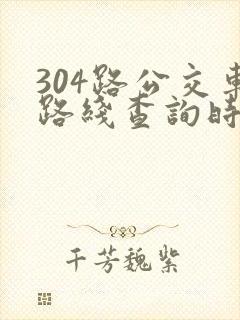 304路公交車
路綫查詢時
千芳魏紫